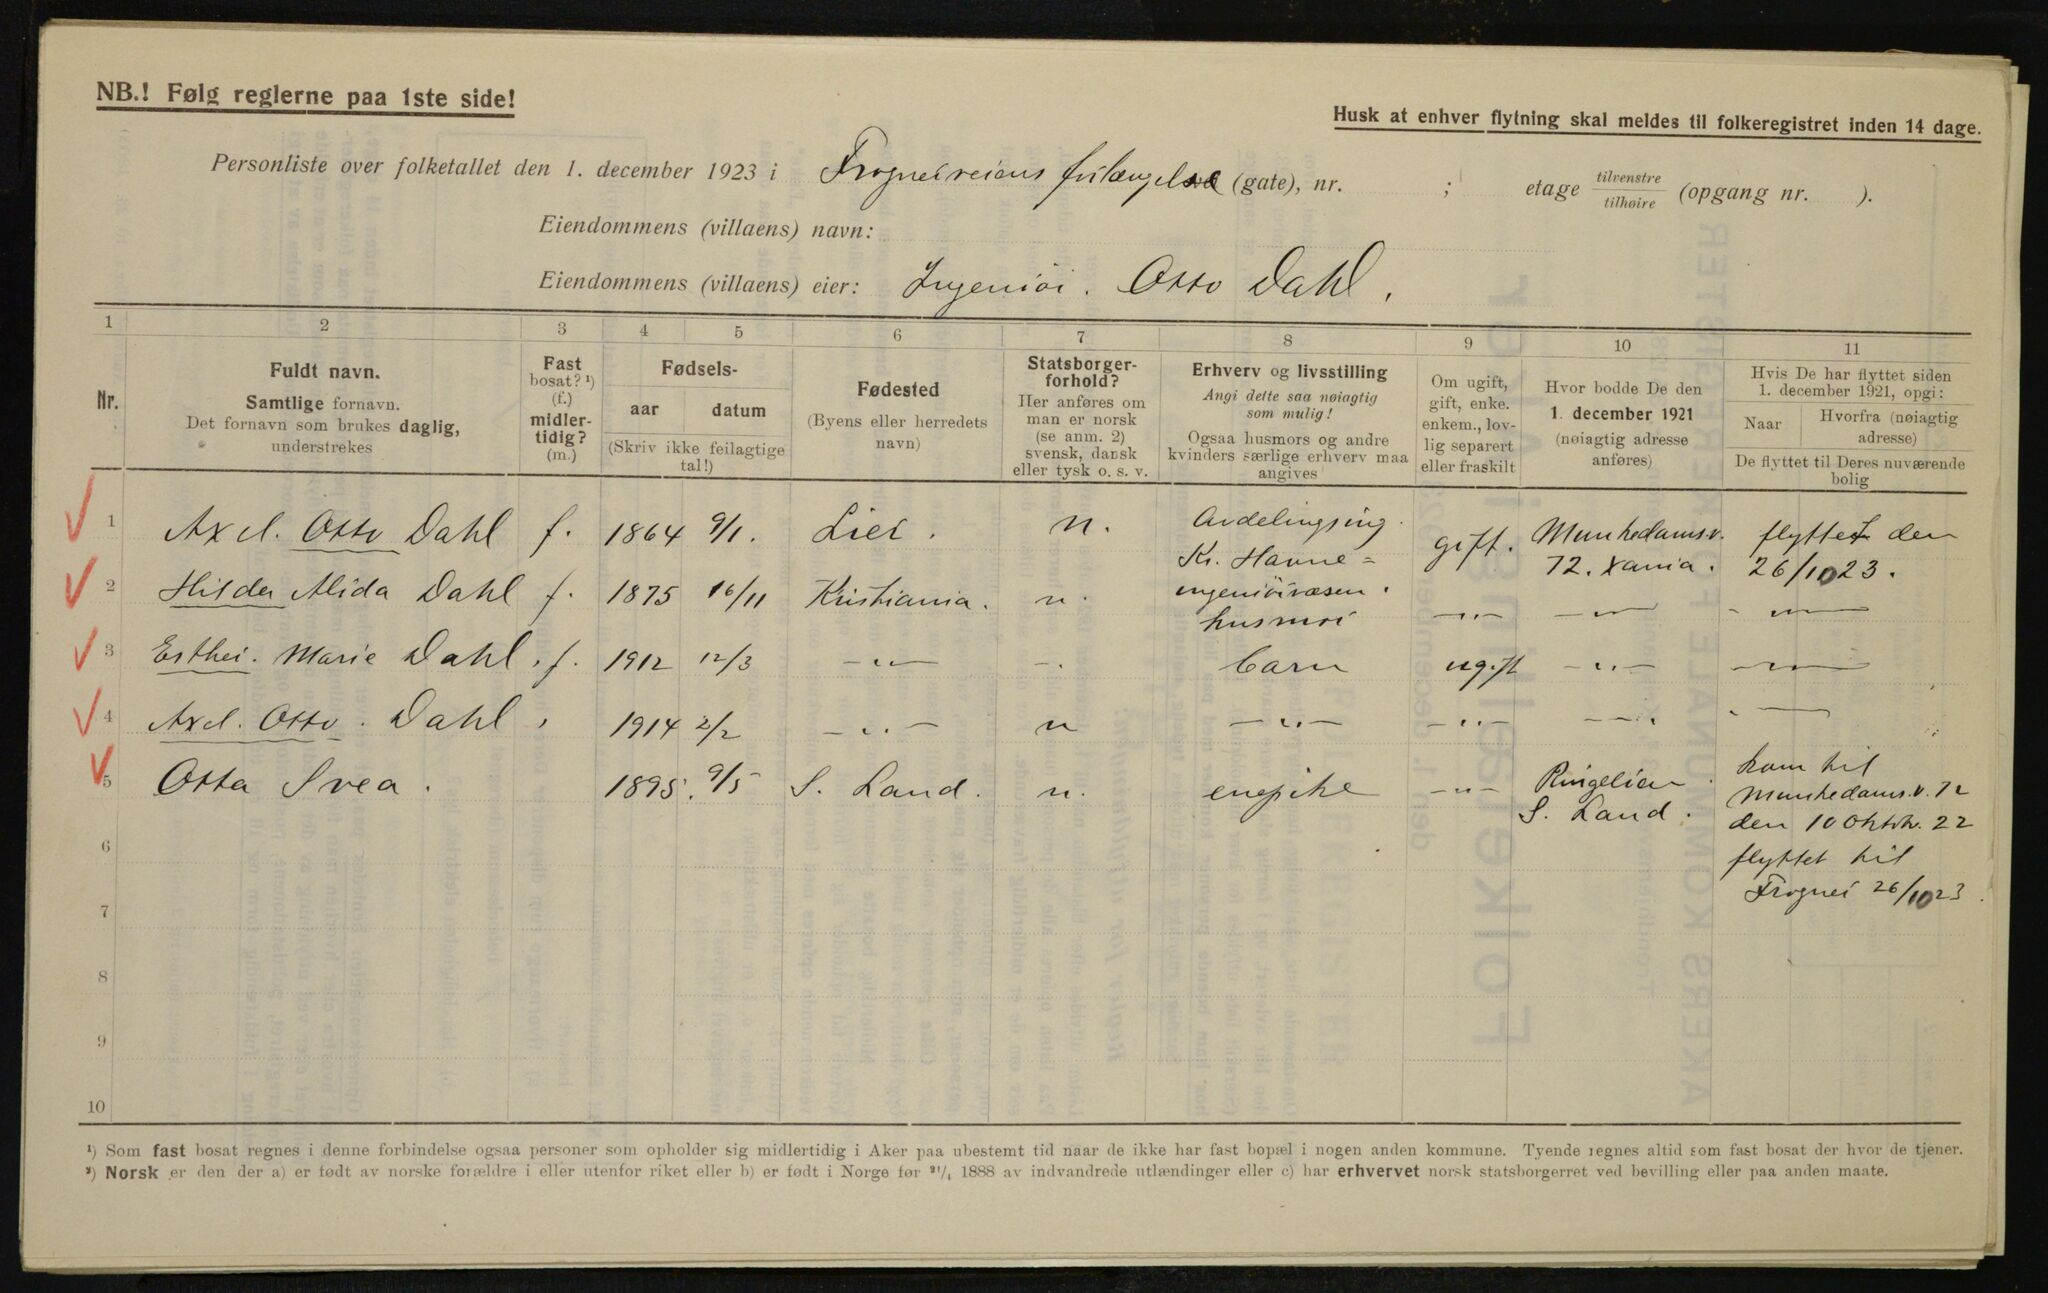 NB.! Følg reglerne paa 1ste side!
Husk at enhver flytning skal meldes til folkeregistret inden 14 dage.
Personliste over folketallet den 1. december 1923 i Frognerveiens forlængelse (gate), nr. ; etage tilvenstre/tilhøire (opgang nr. ).
Eiendommens (villaens) navn:
Eiendommens (villaens) eier: Ingeniør. Otto Dahl.
1 2 3 4 5 6 7 8 9 10 11
Nr.
Fuldt navn.
Samtlige fornavn.
Det fornavn som brukes daglig,
understrekes
Fast
bosat? ¹)
(f.)
midler-
tidig?
(m.)
Fødsels-
aar datum
(Skriv ikke feilagtige
tal!)
Fødested
(Byens eller herredets
navn)
Statsborger-
forhold?
Her anføres om
man er norsk
(se anm. 2)
svensk, dansk
eller tysk o. s. v.
Erhverv og livsstilling
Angi dette saa nøiagtig
som mulig!
Ogsaa husmors og andre
kvinders særlige erhverv maa
angives
Om ugift,
gift, enke.
enkem., lov-
lig separert
eller fraskilt
Hvor bodde De den
1. december 1921
(nøiagtig adresse
anføres)
Hvis De har flyttet siden
1. december 1921, opgi:
Naar Hvorfra (nøiagtig
adresse)
De flyttet til Deres nuværende
bolig
1 Axel. Otto Dahl f. 1864 9/1. Lier. n. Avdelingsing. Kr. Havne= ingeniørvæsen. gift. Munkedamsv. 72. Xania. flyttet den 26/10 23.
2 Hilda Alida Dahl f. 1875 16/11 Kristiania. n. husmor -"- -"- -"-
3 Esther. Marie Dahl. f. 1912 12/3 -"- -"- barn ugift -"- -"-
4 Axel. Otto. Dahl. 1914 2/2 -"- n -"- -"- -"- -"-
5 Otta Svea. 1895. 9/5 S. Land. n. enepike -"- Ringelien S. Land. kom til
Munkedams.v. 72
den 10 Oktbr. 22
6 flyttet til
Frogner 26/10 23.
7
8
9
10
¹) Som fast bosat regnes i denne forbindelse ogsaa personer som opholder sig midlertidig i Aker paa ubestemt tid naar de ikke har fast bopæl i nogen anden kommune. Tyende regnes altid som fast bosat der hvor de tjener.
²) Norsk er den der a) er født av norske forældre i eller utenfor riket eller b) er født i Norge før ²¹/₄ 1888 av indvandrede utlændinger eller c) har erhvervet norsk statsborgerret ved bevilling eller paa anden maate.